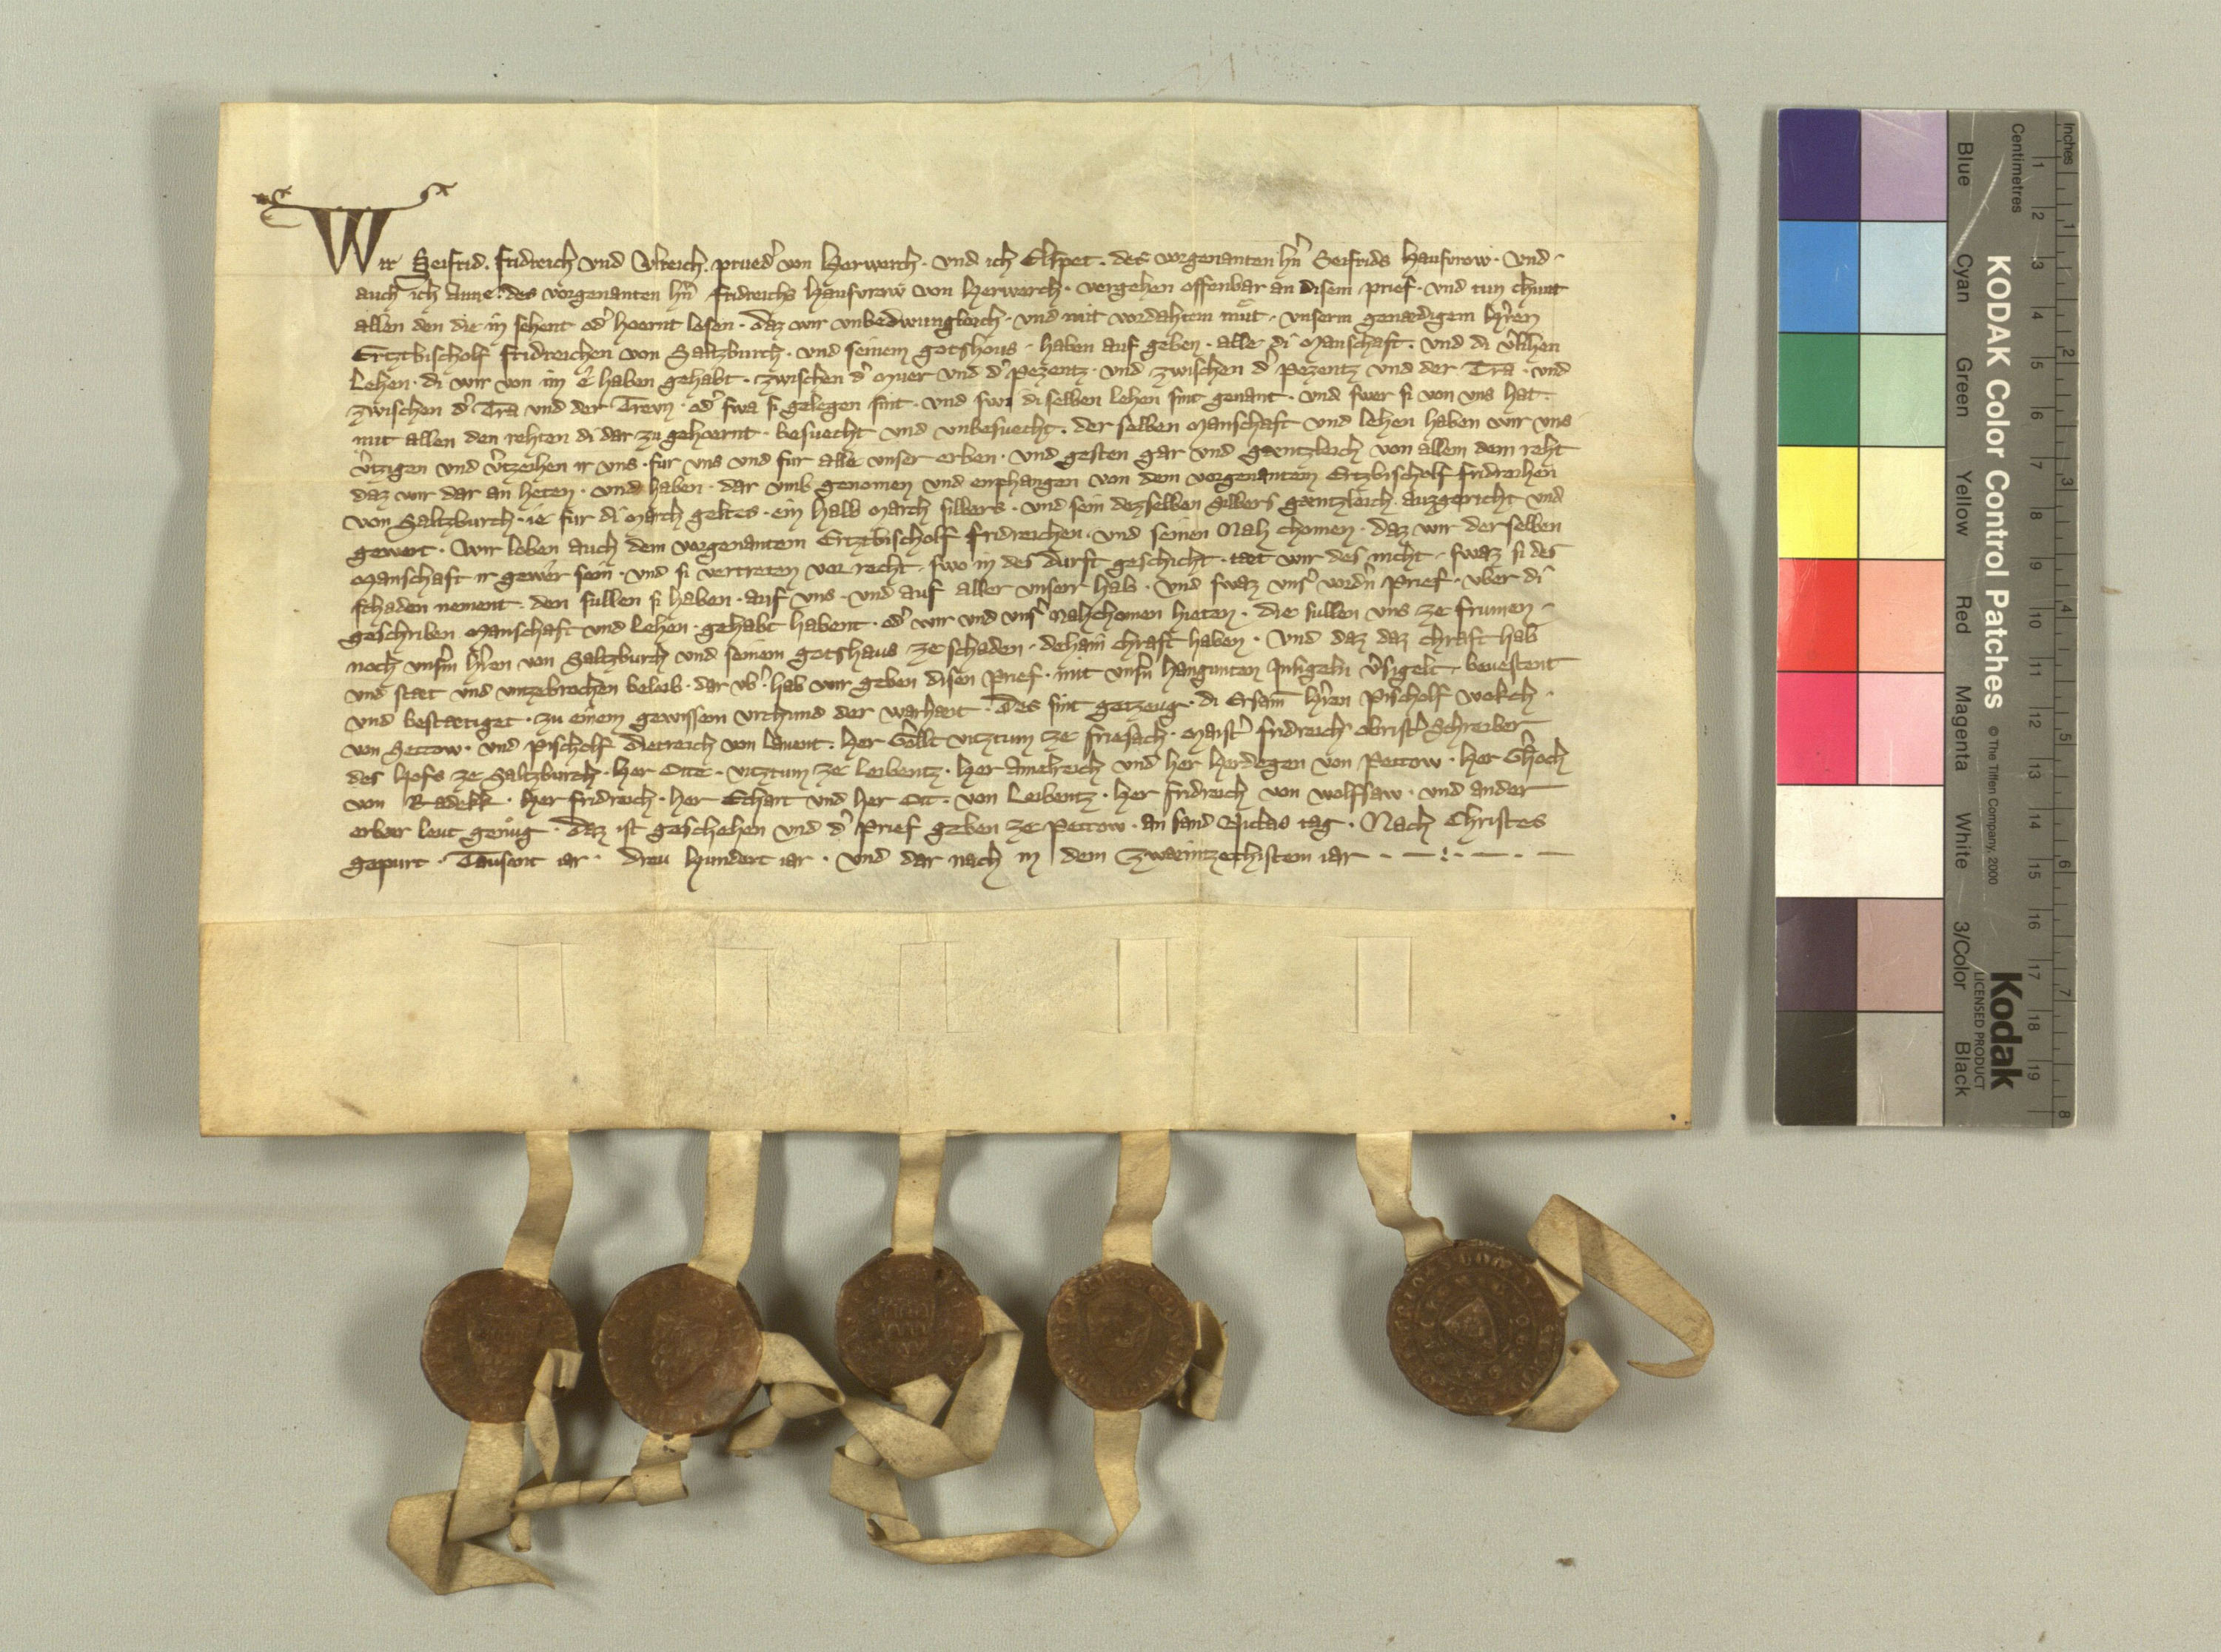 Wir Seifrid. fridreich vnd Vlreich. prueder von Herwerch. vnd ich Elspet. des vorgenanten hn Seifrids Hausvrow. vnd
auch ich Anne. des vorgenanten hn fridreichs Hausvrow von Herwerch. vergehen offenbar an disem prief. vnd tun chunt
allen den die in sehent od hoernt lesen. daz wir vnbedwungleich. vnd mit vordahtem mut. vnserm genædigem hren
Ertzbischolf fridreichen von Saltzburch. vnd seinem gotshous. haben auf geben. alle di Manschaft. vnd di vlihen
Lehen. di wir von im e haben gehabt. zwischen d Muer vnd d Pezentz. vnd zwischen d Pezentz vnd der Tra. vnd
zwischen d Tra vnd der Trevn. od swa si gelegen sint. vnd swi di selben lehen sint genant. vnd swer si von vns hat.
mit allen den rehten di dar zu gehoernt. besuecht vnd vnbesuecht. der selben Manschaft vnd lehen haben wir vns
vtzigen vnd vtzeihen ir vns. fur vns vnd fur alle vnser erben. vnd gesten gar vnd gæntzleich von allem dem reht
daz wir dar an heten. vnd haben. dar vmb genomen vnd enphangen von dem vorgenantem Ertzbischolf fridreichen
von Saltzburch. ie fur di March geltes. ein halb March silbers. vnd sein dezselben silbers gæntzleich auzgericht vnd
gewert. Wir loben auch dem vorgenantem Ertzbischolf fridreichen. vnd seinen Nah chomen. daz wir derselben
Manschaft ir gewer sein. vnd si vertreten vor recht. swo in des durft geschicht. tæt wir des nicht. swaz si des
schaden nement. den sullen si haben. auf vns. vnd auf aller vnserr hab. vnd swaz vns vordn Prief. vber di
geschriben Manschaft vnd lehen. gehabt habent. od wir vnd vns Nahchomen hieten. die sullen vns ze frumen
noch vnsm hren von Saltzburch vnd seinem gotshaus ze schaden. dehain chraft haben. Vnd daz daz chraft hab
vnd stæt vnd vnzebrochen beleib. dar vb. hab wir geben disen Prief. mit vnsn hangunten Insigeln vsigelt. bevestent
vnd bestætiget. zu einem gewissem vrchund der warhait. Des sint getzeug. di Ersam hren Pischolf wokch.
von Seccow. vnd Pischolf Dietreich von Lavent. Her Gollt vitztum ze friesach. Maist fridreich obrist Schreiber
des Hofs ze Saltzburch. Her Otte. vitztum ze Leibentz. Her Amelreich vnd her Herdegen von Pettow. Her Ghoch
von Radekk. Her fridreich. Her Ekhart vnd Her Ott. von Leibentz. Her fridreich von wolfsaw. vnd ander
erbær leut genug. Daz ist geschehen vnd d Prief geben ze Pettow. an sand Niclas tag. Nach Christes
gepurt. Tausent iar. dreu hundert iar. vnd dar nach in dem Zwaintzechistem iar
KODAK Color Control Patches © The Tiffen Company, 2000
Kodak
LICENSED PRODUCT
Blue Cyan Green Yellow Red Magenta White 3/Color Black
Inches 1 2 3 4 5 6 7 8
Centimetres 1 2 3 4 5 6 7 8 9 10 11 12 13 14 15 16 17 18 19